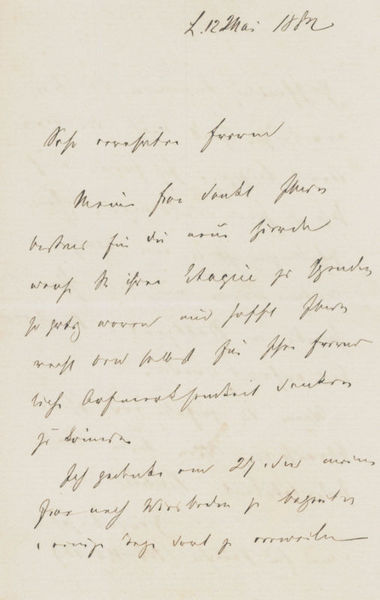 L. 12 Mai 1882
Sehr verehrter Freund
Meine Frau dankt Ihnen
bestens für die neue Zierde
welche Sie ihrer Etagère zu spenden
so gütig waren und hofft Ihnen
recht bald selbst für Ihre freund
liche Aufmerksamkeit danken
zu können
Ich gedenke am 27. dies meine
Frau nach Wiesbaden zu begleiten
u einige Tage dort zu verweilen